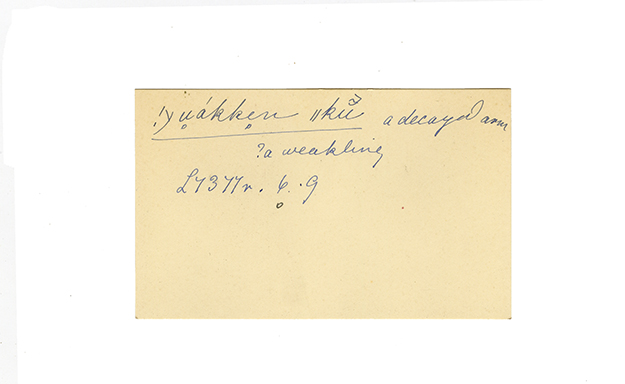 !)u̯ákk̤en ǁkŭ a decayed arm
?a weakling
L7377r. 6. 9